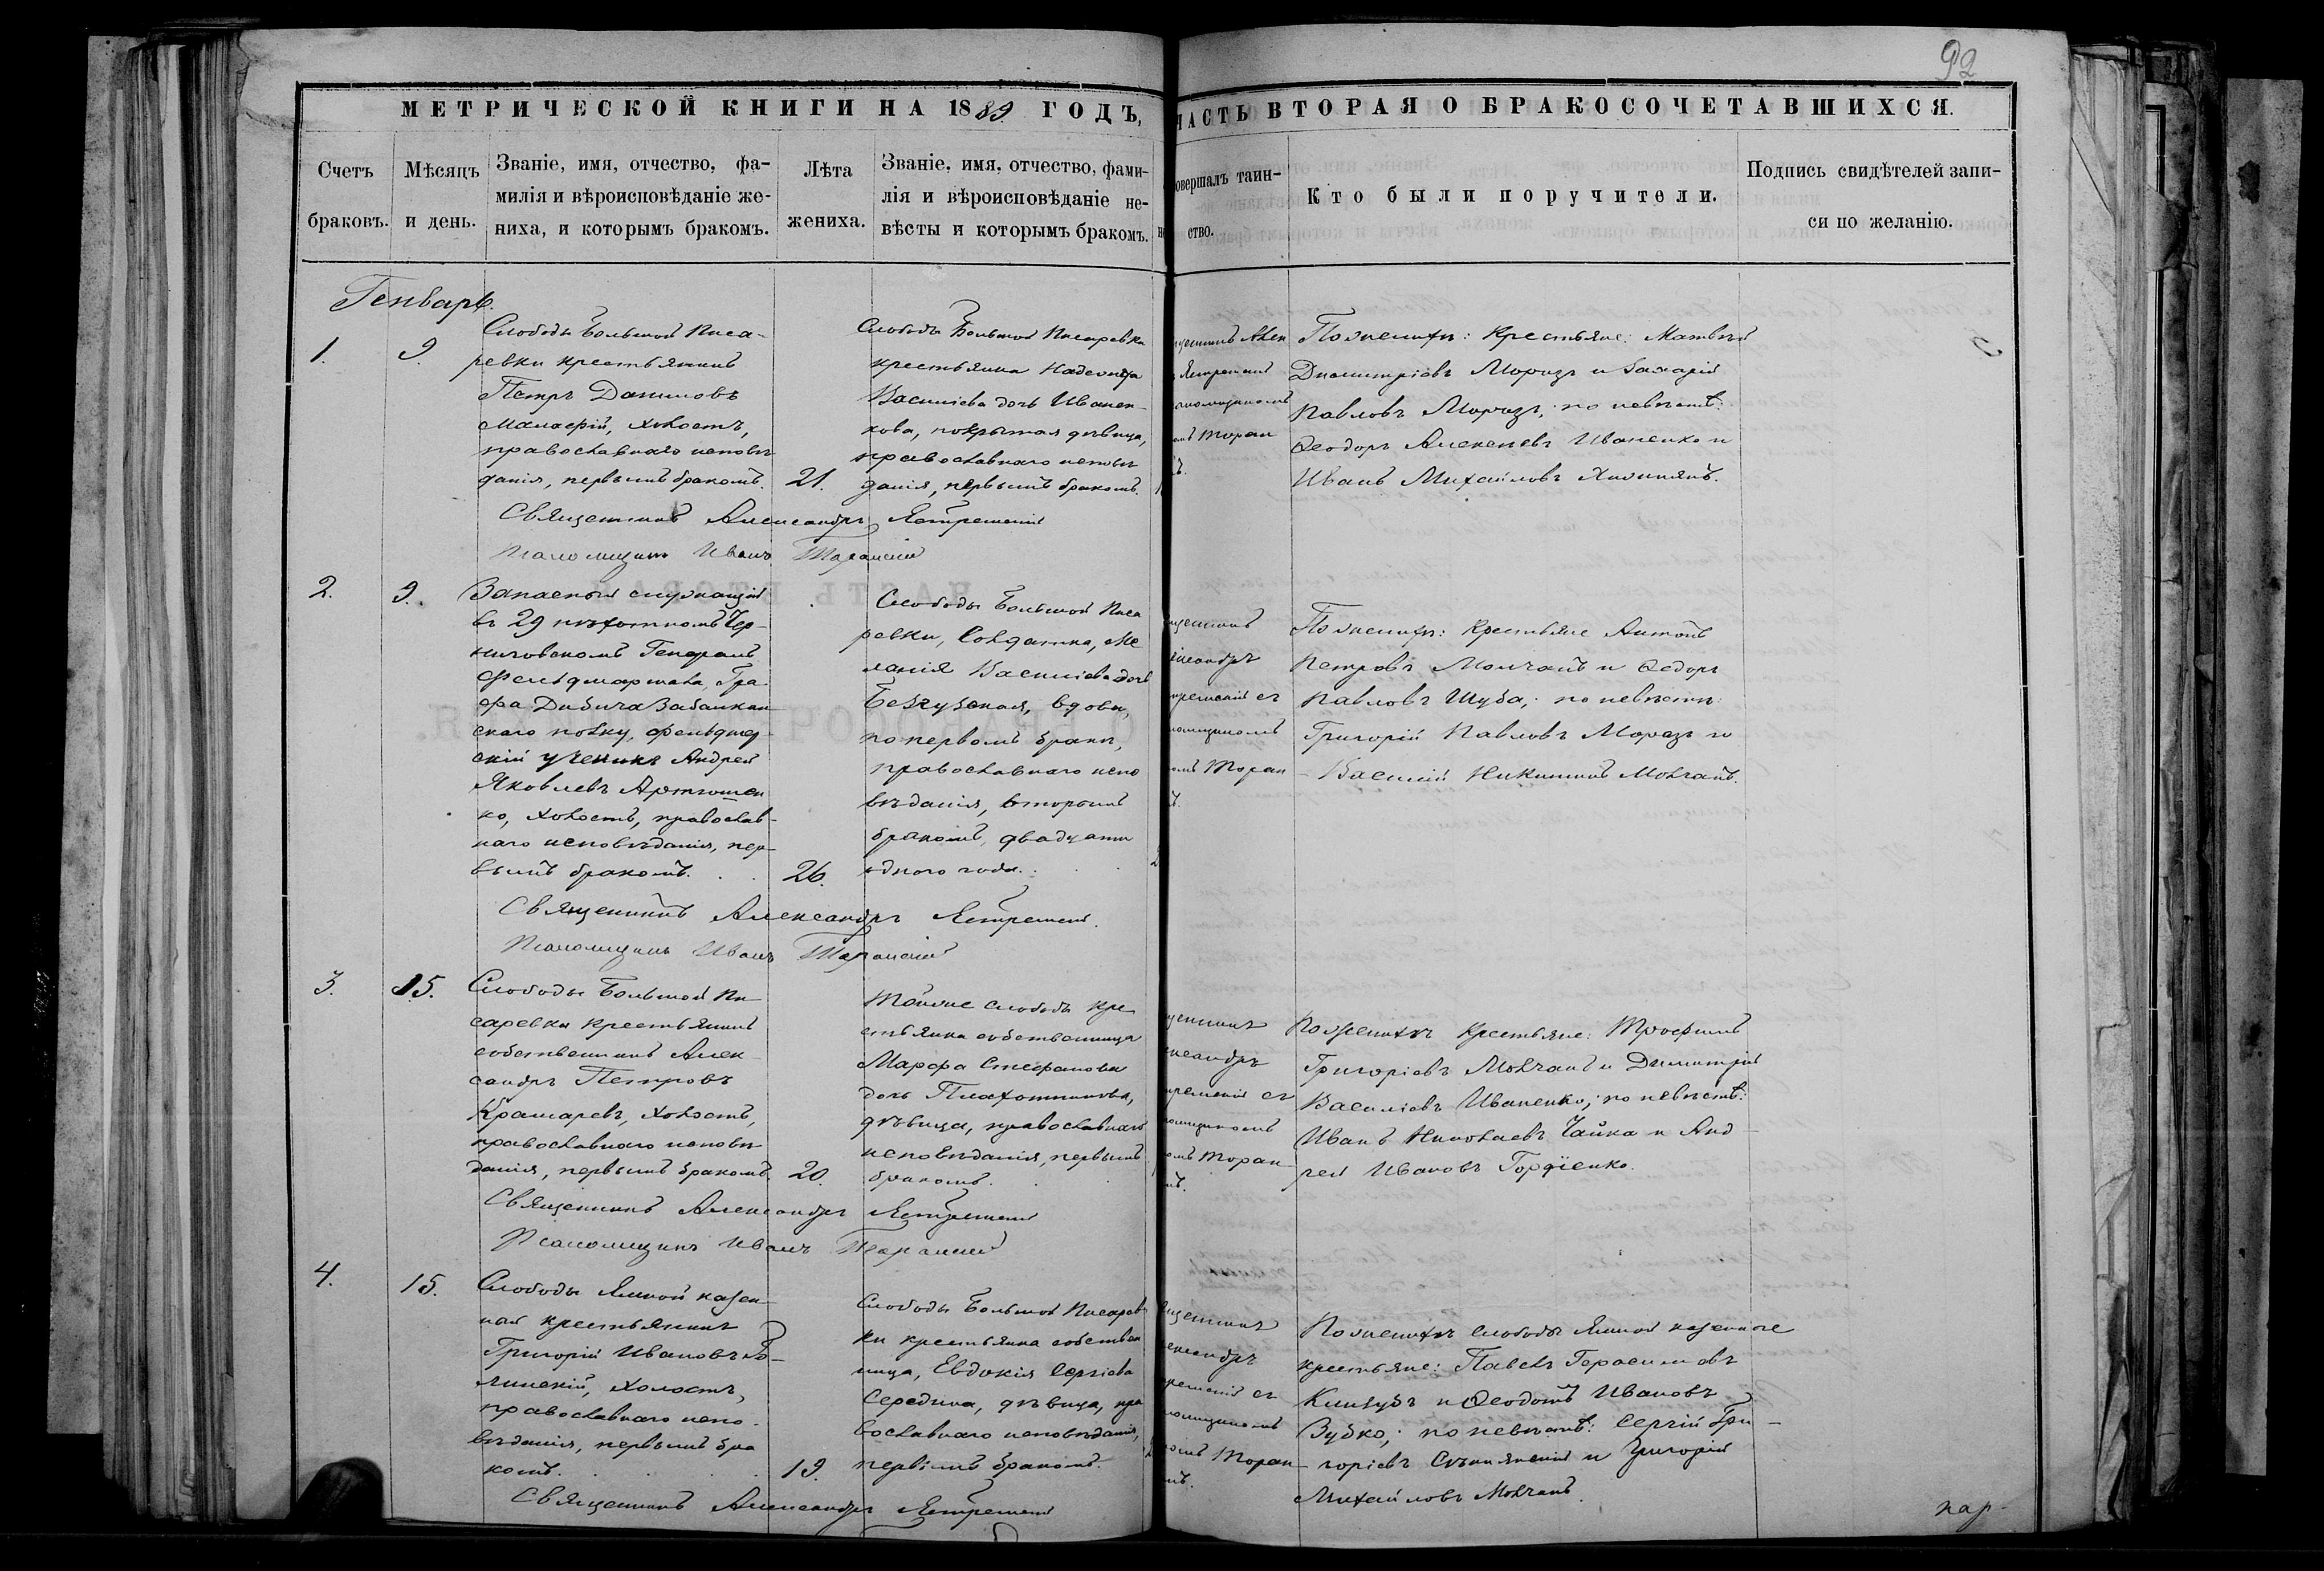 92
МЕТРИЧЕСКОЙ КНИГИ НА 1889 ГОДЪ,
ЧАСТЬ ВТОРАЯ О БРАКОСОЧЕТАВШИХСЯ.
Счетъ
браковъ.
Мѣсяцъ
и день.
Званіе, имя, отчество, фа-
милія и вѣроисповѣданіе же-
ниха, и которымъ бракомъ.
Лѣта
жениха.
Званіе, имя, отчество, фами-
лія и вѣроисповѣданіе не-
вѣсты и которымъ бракомъ.
совершалъ таин-
ство.
Кто были поручители.
Подпись свидѣтелей запи-
си по желанію.
Генварь.
1.
9.
Слободы Большой Писа-
ревки крестьянинъ
Петръ Даниловъ
холостъ,
православнаго исповѣ
данія, первымъ бракомъ.
21.
Слободы Большой Писаревки
крестьянка Надежда
Василіева дочь Иванен-
кова, покрытая дѣвица,
православнаго исповѣ
данія, первымъ бракомъ.
Поженихѣ: Крестьяне: Матвѣй
Димитріевъ Морозъ и Захарій
Павловъ Морозъ; по невѣстѣ:
Ѳеодоръ Алексѣевъ Иваненко и
Иванъ Михайловъ
Священникъ Александръ Ястремскій
Псаломщикъ Иванъ Таранскій
2.
9.
Запасный служащій
въ 29 пѣхотномъ Чер-
ниговскомъ Генералъ
Фельдмаршала, Гра-
фа Дибича Забалкан
скаго полку, фельдшер
скій ученикъ Андрей
Яковлевъ Артюшен
ко, холостъ, православ-
наго исповѣданія, пер-
вымъ бракомъ.
26.
Слободы Большой Писа
ревки, Солдатка, Ме
ланія Василіева дочь
вдова,
по первомъ бракѣ,
православнаго испо
вѣданія, вторымъ
бракомъ, двадцати
одного года.
Поженихѣ: Крестьяне Антонъ
Петровъ Молчанъ и Ѳедоръ
Павловъ Шуба; по невѣстѣ:
Григорій Павловъ Морозъ и
Василій Никитинъ Молчанъ.
Священникъ Александръ Ястремскій.
Псаломщикъ Иванъ Таранскій
3.
15.
Слободы Большой Пи-
саревки крестьянинъ
собственникъ Алек-
сандръ Петровъ
Крамаревъ, холостъ,
православнаго исповѣ
данія, первымъ бракомъ.
20.
Тойже слободы кре
стьянка собственница
Марфа Стефанова
дочь Плахотникова,
дѣвица, православнаго
исповѣданія, первымъ
бракомъ.
Поженихѣ крестьяне: Трофимъ
Григоріевъ Молчанъ и Димитрій
Василіевъ Иваненко; по невѣстѣ:
Иванъ Николаевъ Чайка и Анд-
рей Ивановъ Гордіенко.
Священникъ Александръ Ястремскій
Псаломщикъ Иванъ Таранскій
4.
15.
Слободы Ямной казен-
ный крестьянинъ
Григорій Ивановъ
холостъ,
православнаго испо-
вѣданія, первымъ бра
комъ.
19.
Слободы Большой Писарев
ки крестьянка собствен
ница, Евдокія Сергіева
Середина, дѣвица, пра
вославнаго исповѣданія,
первымъ бракомъ.
Поженихѣ слободы Ямной казенные
крестьяне: Павелъ Герасимовъ
и Ѳеодотъ Ивановъ
Зубко; по невѣстѣ: Сергій Гри-
горіевъ и Григорій
Михайловъ Молчанъ
Священникъ Александръ Ястремскій